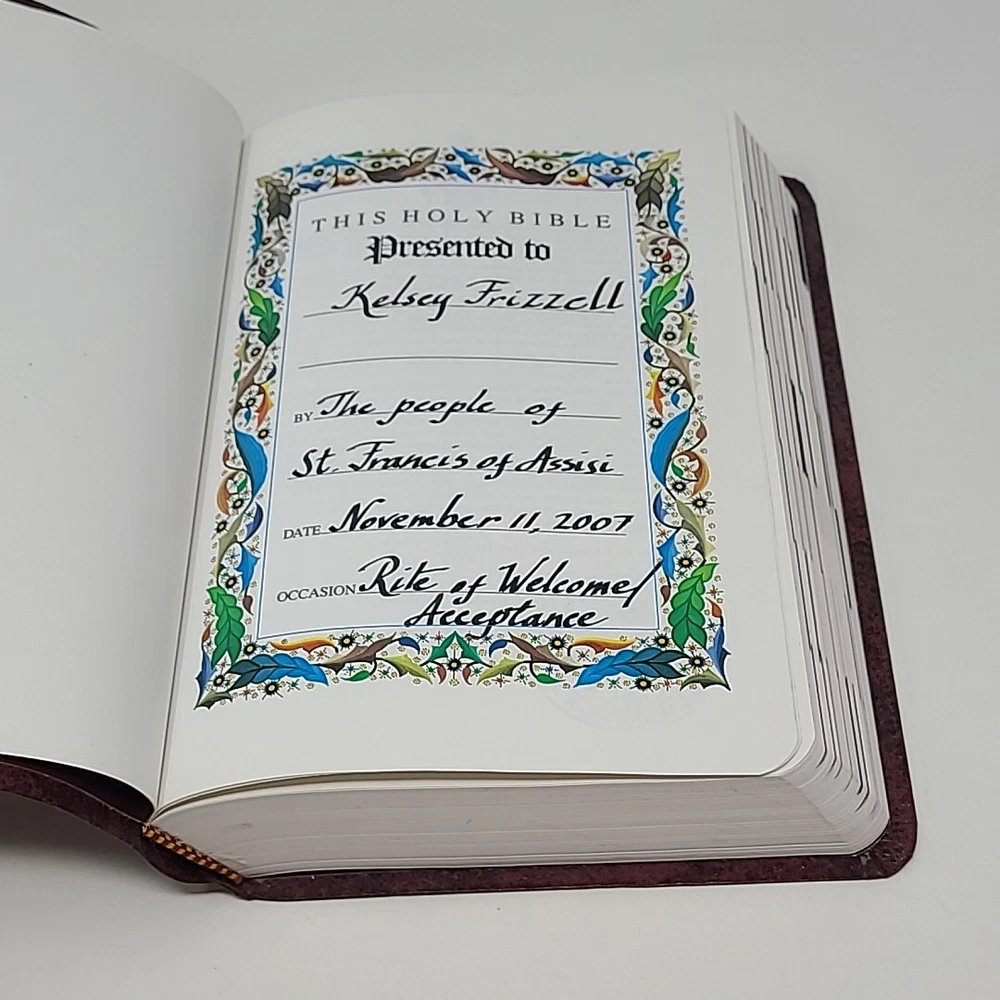 THIS HOLY BIBLE
Presented to
Kelsey Frizzell
BY The people of
St. Francis of Assisi
DATE November 11, 2007
OCCASION Rite of Welcome/
Acceptance